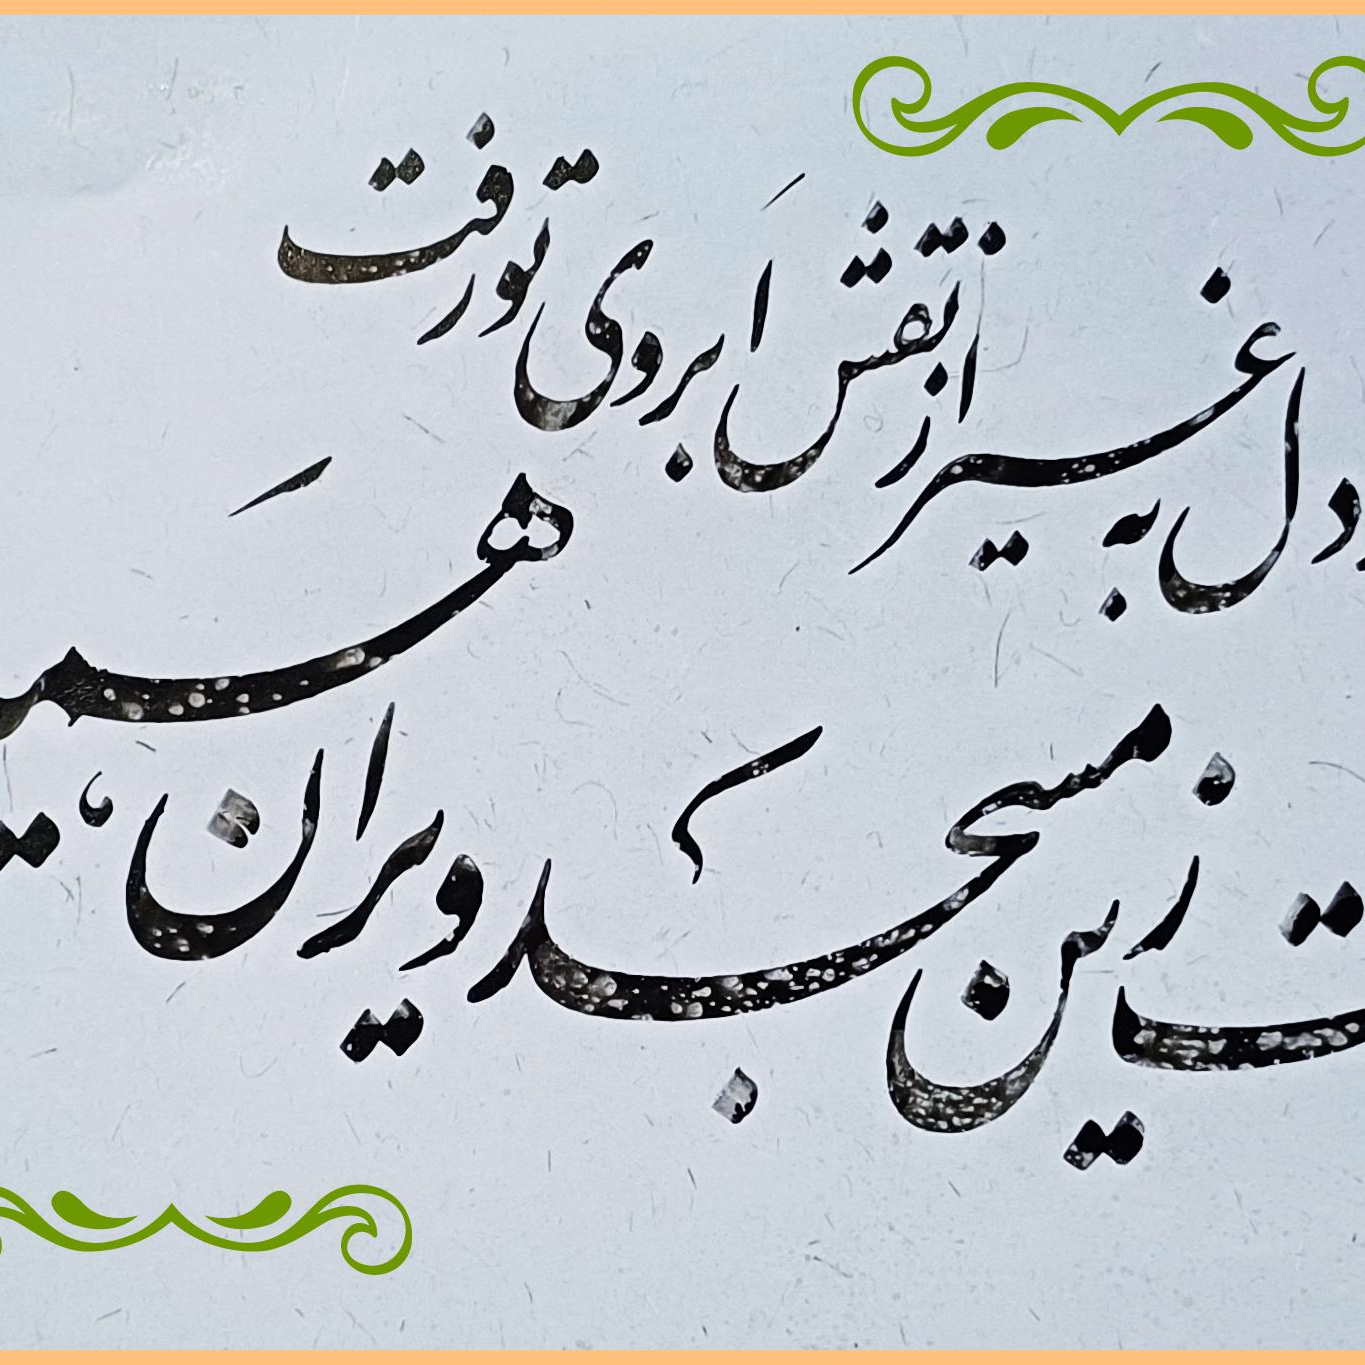 دل به غیر از نقش ابروی تو رفت
ت زین مسجد ویران، هَمی